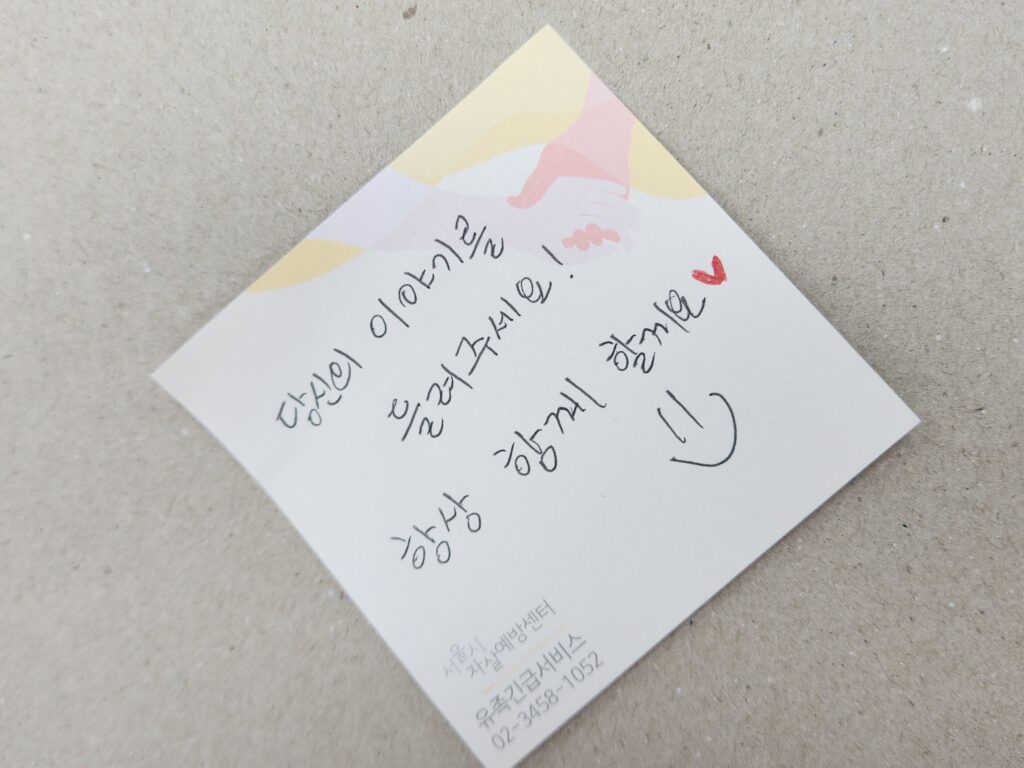 당신의 이야기를
들려주세요!
항상 함께 할게요
서울시
자살예방센터
유족긴급서비스
02-3458-1052